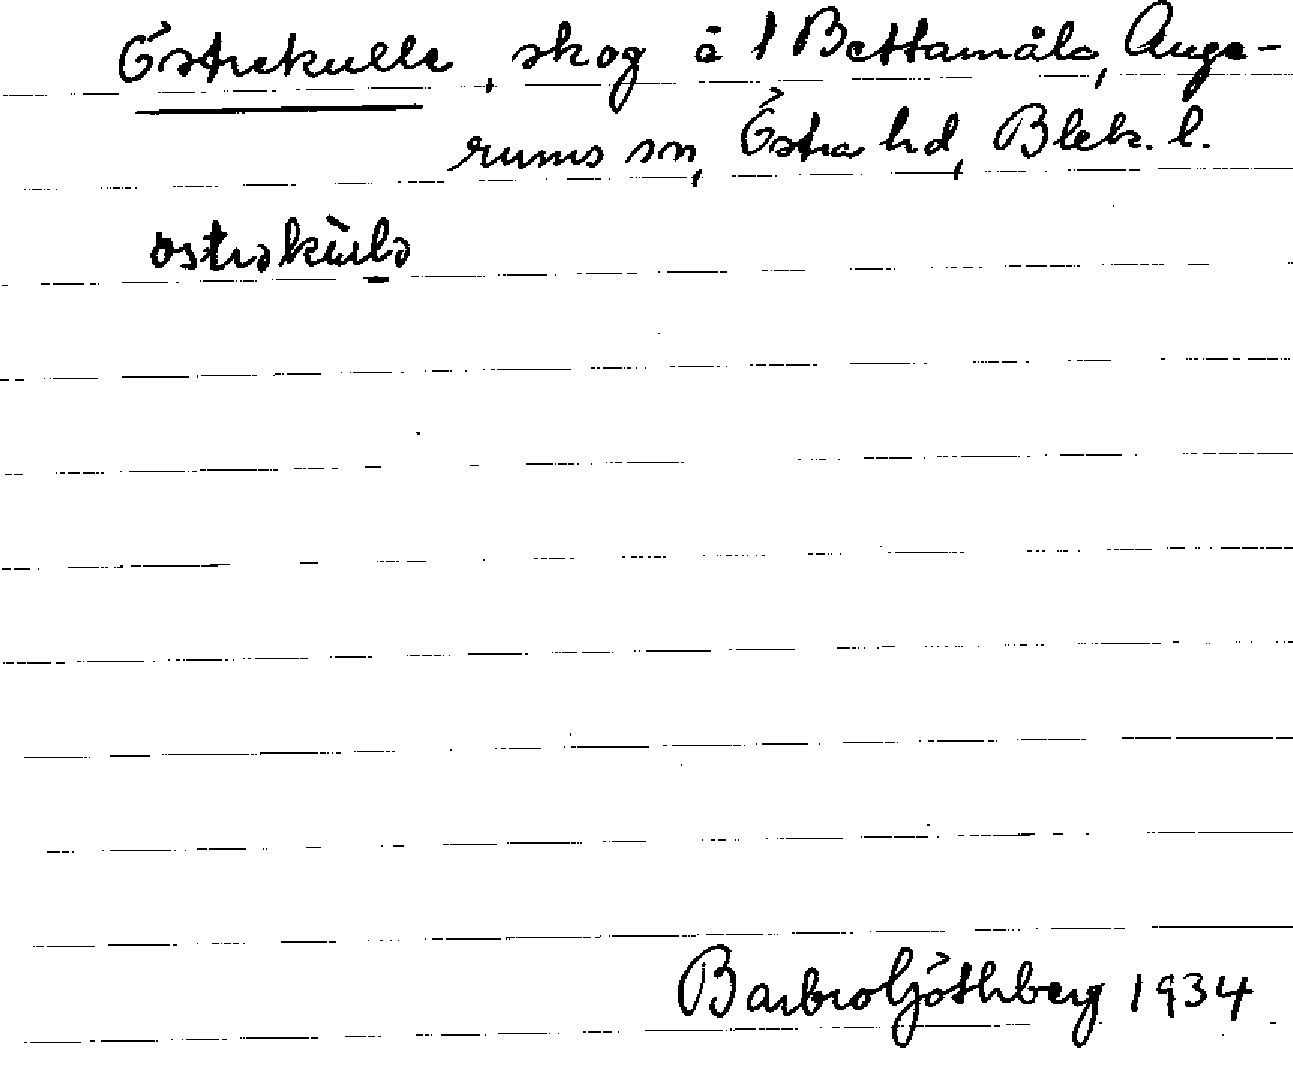 Östrekulle, skog å 1 Bettamåla, Auge-
rums sn, Östra hd, Blek. l.
östrəkùlə
Barbro Göthberg 1934